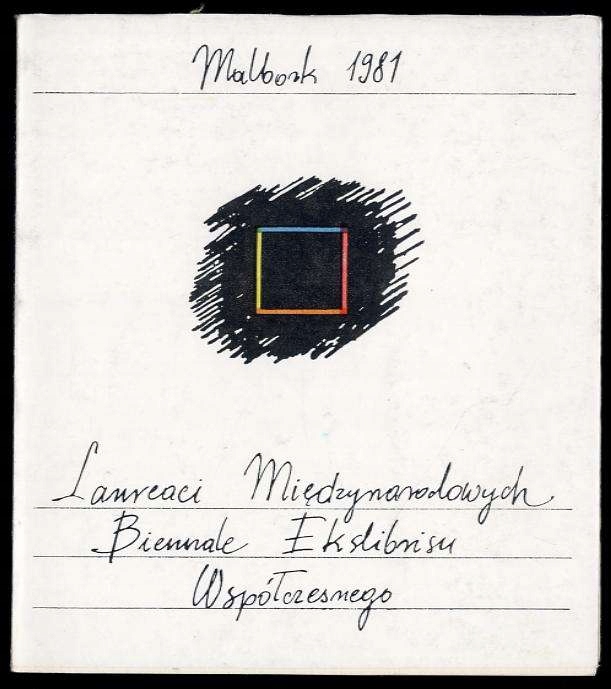 Malbork 1981
Laureaci Międzynarodowych
Biennale Ekslibrisu
Współczesnego